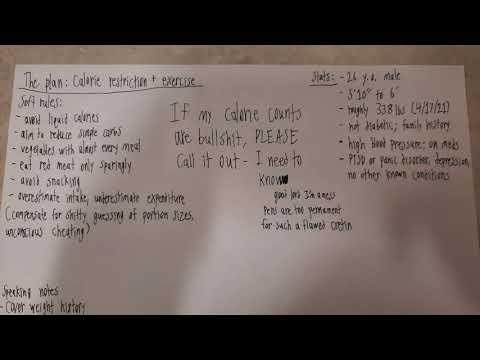 The plan: Calorie restriction + exercise
Soft rules:
- avoid liquid calories
- aim to reduce simple carbs
- vegetables with almost every meal
- eat red meat only sparingly
- avoid snacking
- overestimate intake, underestimate expenditure
(compensate for shitty guessing of portion sizes,
unconscious cheating)
Speaking notes
- Cover weight history
If my calorie counts
are bullshit, PLEASE
call it out - I need to
know
good lord I'm a mess
Pens are too permanent
for such a flawed cretin
Stats: - 26 y.o. male
- 5'10" to 6'
- roughly 338 lbs (4/17/21)
- not diabetic; family history
- high blood pressure; on meds
- PTSD or panic disorder, depression
no other known conditions